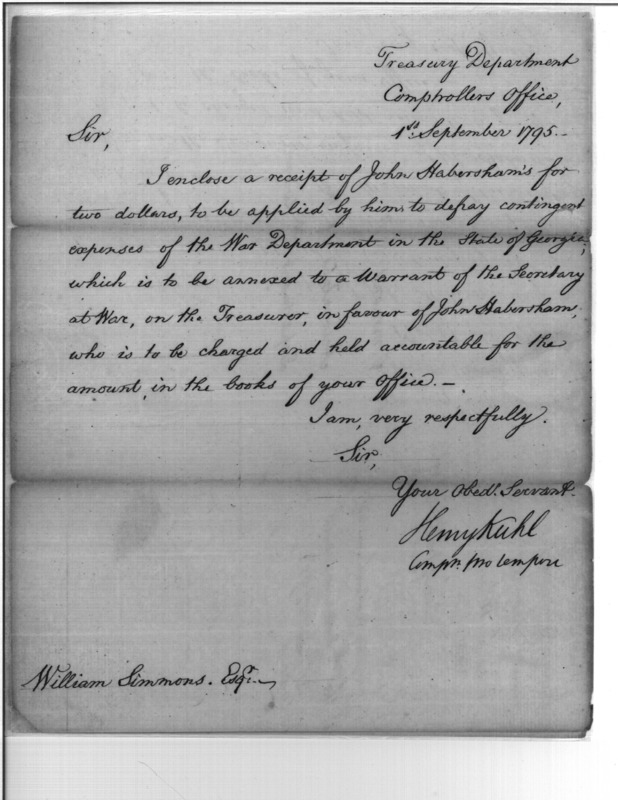 Treasury Department
Comptrollers Office,
1st. September 1795.-
Sir,
I enclose a receipt of John Habersham's for
two dollars, to be applied by him to defray contingent
expenses of the War Department in the State of Georgia;
which is to be annexed to a Warrant of the Secretary
at War, on the Treasurer, in favour of John Habersham,
who is to be charged and held accountable for the
amount, in the books of your Office. -
I am, very respectfully.
Sir,
Your Obedt. Servant.
Henry Kuhl
Compr. pro tempore
William Simmons. Esqr.